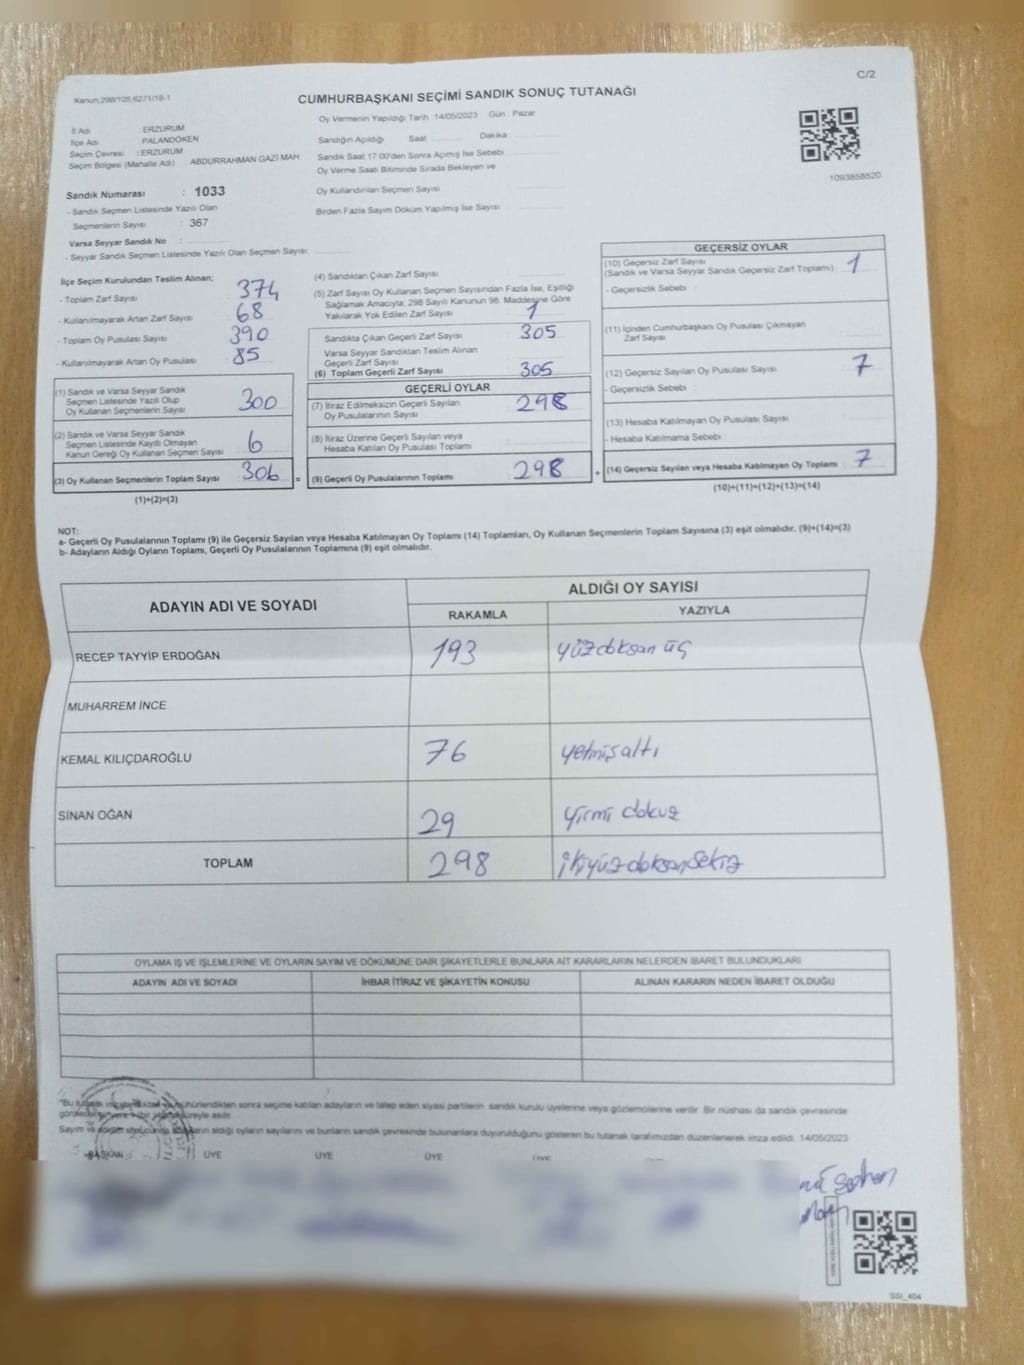 Kanun:298/105,6271/18-1
C/2
CUMHURBAŞKANI SEÇİMİ SANDIK SONUÇ TUTANAĞI
İl Adı : ERZURUM
İlçe Adı : PALANDÖKEN
Seçim Çevresi : ERZURUM
Seçim Bölgesi (Mahalle Adı) : ABDURRAHMAN GAZİ MAH.
Sandık Numarası : 1033
- Sandık Seçmen Listesinde Yazılı Olan
Seçmenlerin Sayısı : 367
Varsa Seyyar Sandık No :
- Seyyar Sandık Seçmen Listesinde Yazılı Olan Seçmen Sayısı:
Oy Vermenin Yapıldığı Tarih :14/05/2023 Gün : Pazar
Sandığın Açıldığı Saat Dakika
Sandık Saat 17:00'den Sonra Açımış İse Sebebi
Oy Verme Saati Bitiminde Sırada Bekleyen ve
Oy Kullandırılan Seçmen Sayısı
Birden Fazla Sayım Döküm Yapılmış İse Sayısı
1093858520
İlçe Seçim Kurulundan Teslim Alınan;
- Toplam Zarf Sayısı 374
- Kullanılmayarak Artan Zarf Sayısı 68
- Toplam Oy Pusulası Sayısı 390
- Kullanılmayarak Artan Oy Pusulası 85
(1) Sandık ve Varsa Seyyar Sandık
Seçmen Listesinde Yazılı Olup
Oy Kullanan Seçmenlerin Sayısı 300
(2) Sandık ve Varsa Seyyar Sandık
Seçmen Listesinde Kayıtlı Olmayan
Kanun Gereği Oy Kullanan Seçmen Sayısı 6
(3) Oy Kullanan Seçmenlerin Toplam Sayısı 306 =
(1)+(2)=(3)
(4) Sandıktan Çıkan Zarf Sayısı
(5) Zarf Sayısı Oy Kullanan Seçmen Sayısından Fazla İse, Eşitliği
Sağlamak Amacıyla, 298 Sayılı Kanunun 98. Maddesine Göre
Yakılarak Yok Edilen Zarf Sayısı 1
Sandıkta Çıkan Geçerli Zarf Sayısı 305
Varsa Seyyar Sandıktan Teslim Alınan
Geçerli Zarf Sayısı
(6) Toplam Geçerli Zarf Sayısı 305
GEÇERLİ OYLAR
(7) İtiraz Edilmeksizin Geçerli Sayılan
Oy Pusulalarının Sayısı 298
(8) İtiraz Üzerine Geçerli Sayılan veya
Hesaba Katılan Oy Pusulası Toplamı
(9) Geçerli Oy Pusulalarının Toplamı 298 +
GEÇERSİZ OYLAR
(10) Geçersiz Zarf Sayısı
(Sandık ve Varsa Seyyar Sandık Geçersiz Zarf Toplamı) : 1
- Geçersizlik Sebebi :
(11) İçinden Cumhurbaşkanı Oy Pusulası Çıkmayan
Zarf Sayısı
(12) Geçersiz Sayılan Oy Pusulası Sayısı 7
- Geçersizlik Sebebi :
(13) Hesaba Katılmayan Oy Pusulası Sayısı
- Hesaba Katılmama Sebebi
(14) Geçersiz Sayılan veya Hesaba Katılmayan Oy Toplamı 7
(10)+(11)+(12)+(13)=(14)
NOT:
a- Geçerli Oy Pusulalarının Toplamı (9) ile Geçersiz Sayılan veya Hesaba Katılmayan Oy Toplamı (14) Toplamları, Oy Kullanan Seçmenlerin Toplam Sayısına (3) eşit olmalıdır. (9)+(14)=(3)
b- Adayların Aldığı Oyların Toplamı, Geçerli Oy Pusulalarının Toplamına (9) eşit olmalıdır.
ADAYIN ADI VE SOYADI ALDIĞI OY SAYISI
RAKAMLA YAZIYLA
RECEP TAYYİP ERDOĞAN 193 yüzdoksan üç
MUHARREM İNCE
KEMAL KILIÇDAROĞLU 76 yetmişaltı
SİNAN OĞAN 29 yirmi dokuz
TOPLAM 298 ikiyüzdoksansekiz
OYLAMA İŞ VE İŞLEMLERİNE VE OYLARIN SAYIM VE DÖKÜMÜNE DAİR ŞİKAYETLERLE BUNLARA AİT KARARLARIN NELERDEN İBARET BULUNDUKLARI
ADAYIN ADI VE SOYADI İHBAR İTİRAZ VE ŞİKAYETİN KONUSU ALINAN KARARIN NEDEN İBARET OLDUĞU
sonra seçime katılan adayların ve talep eden siyasi partilerin sandık kurulu üyelerine veya gözlemcilerine verilir. Bir nüshası da sandık çevresinde
asılır.
Sayım ve aldığı oyların sayılarını ve bunların sandık çevresinde bulunanlara duyurulduğunu gösteren bu tutanak tarafımızdan düzenlenerek imza edildi. 14/05/2023
BAŞKAN ÜYE ÜYE ÜYE ÜYE
SSI_404